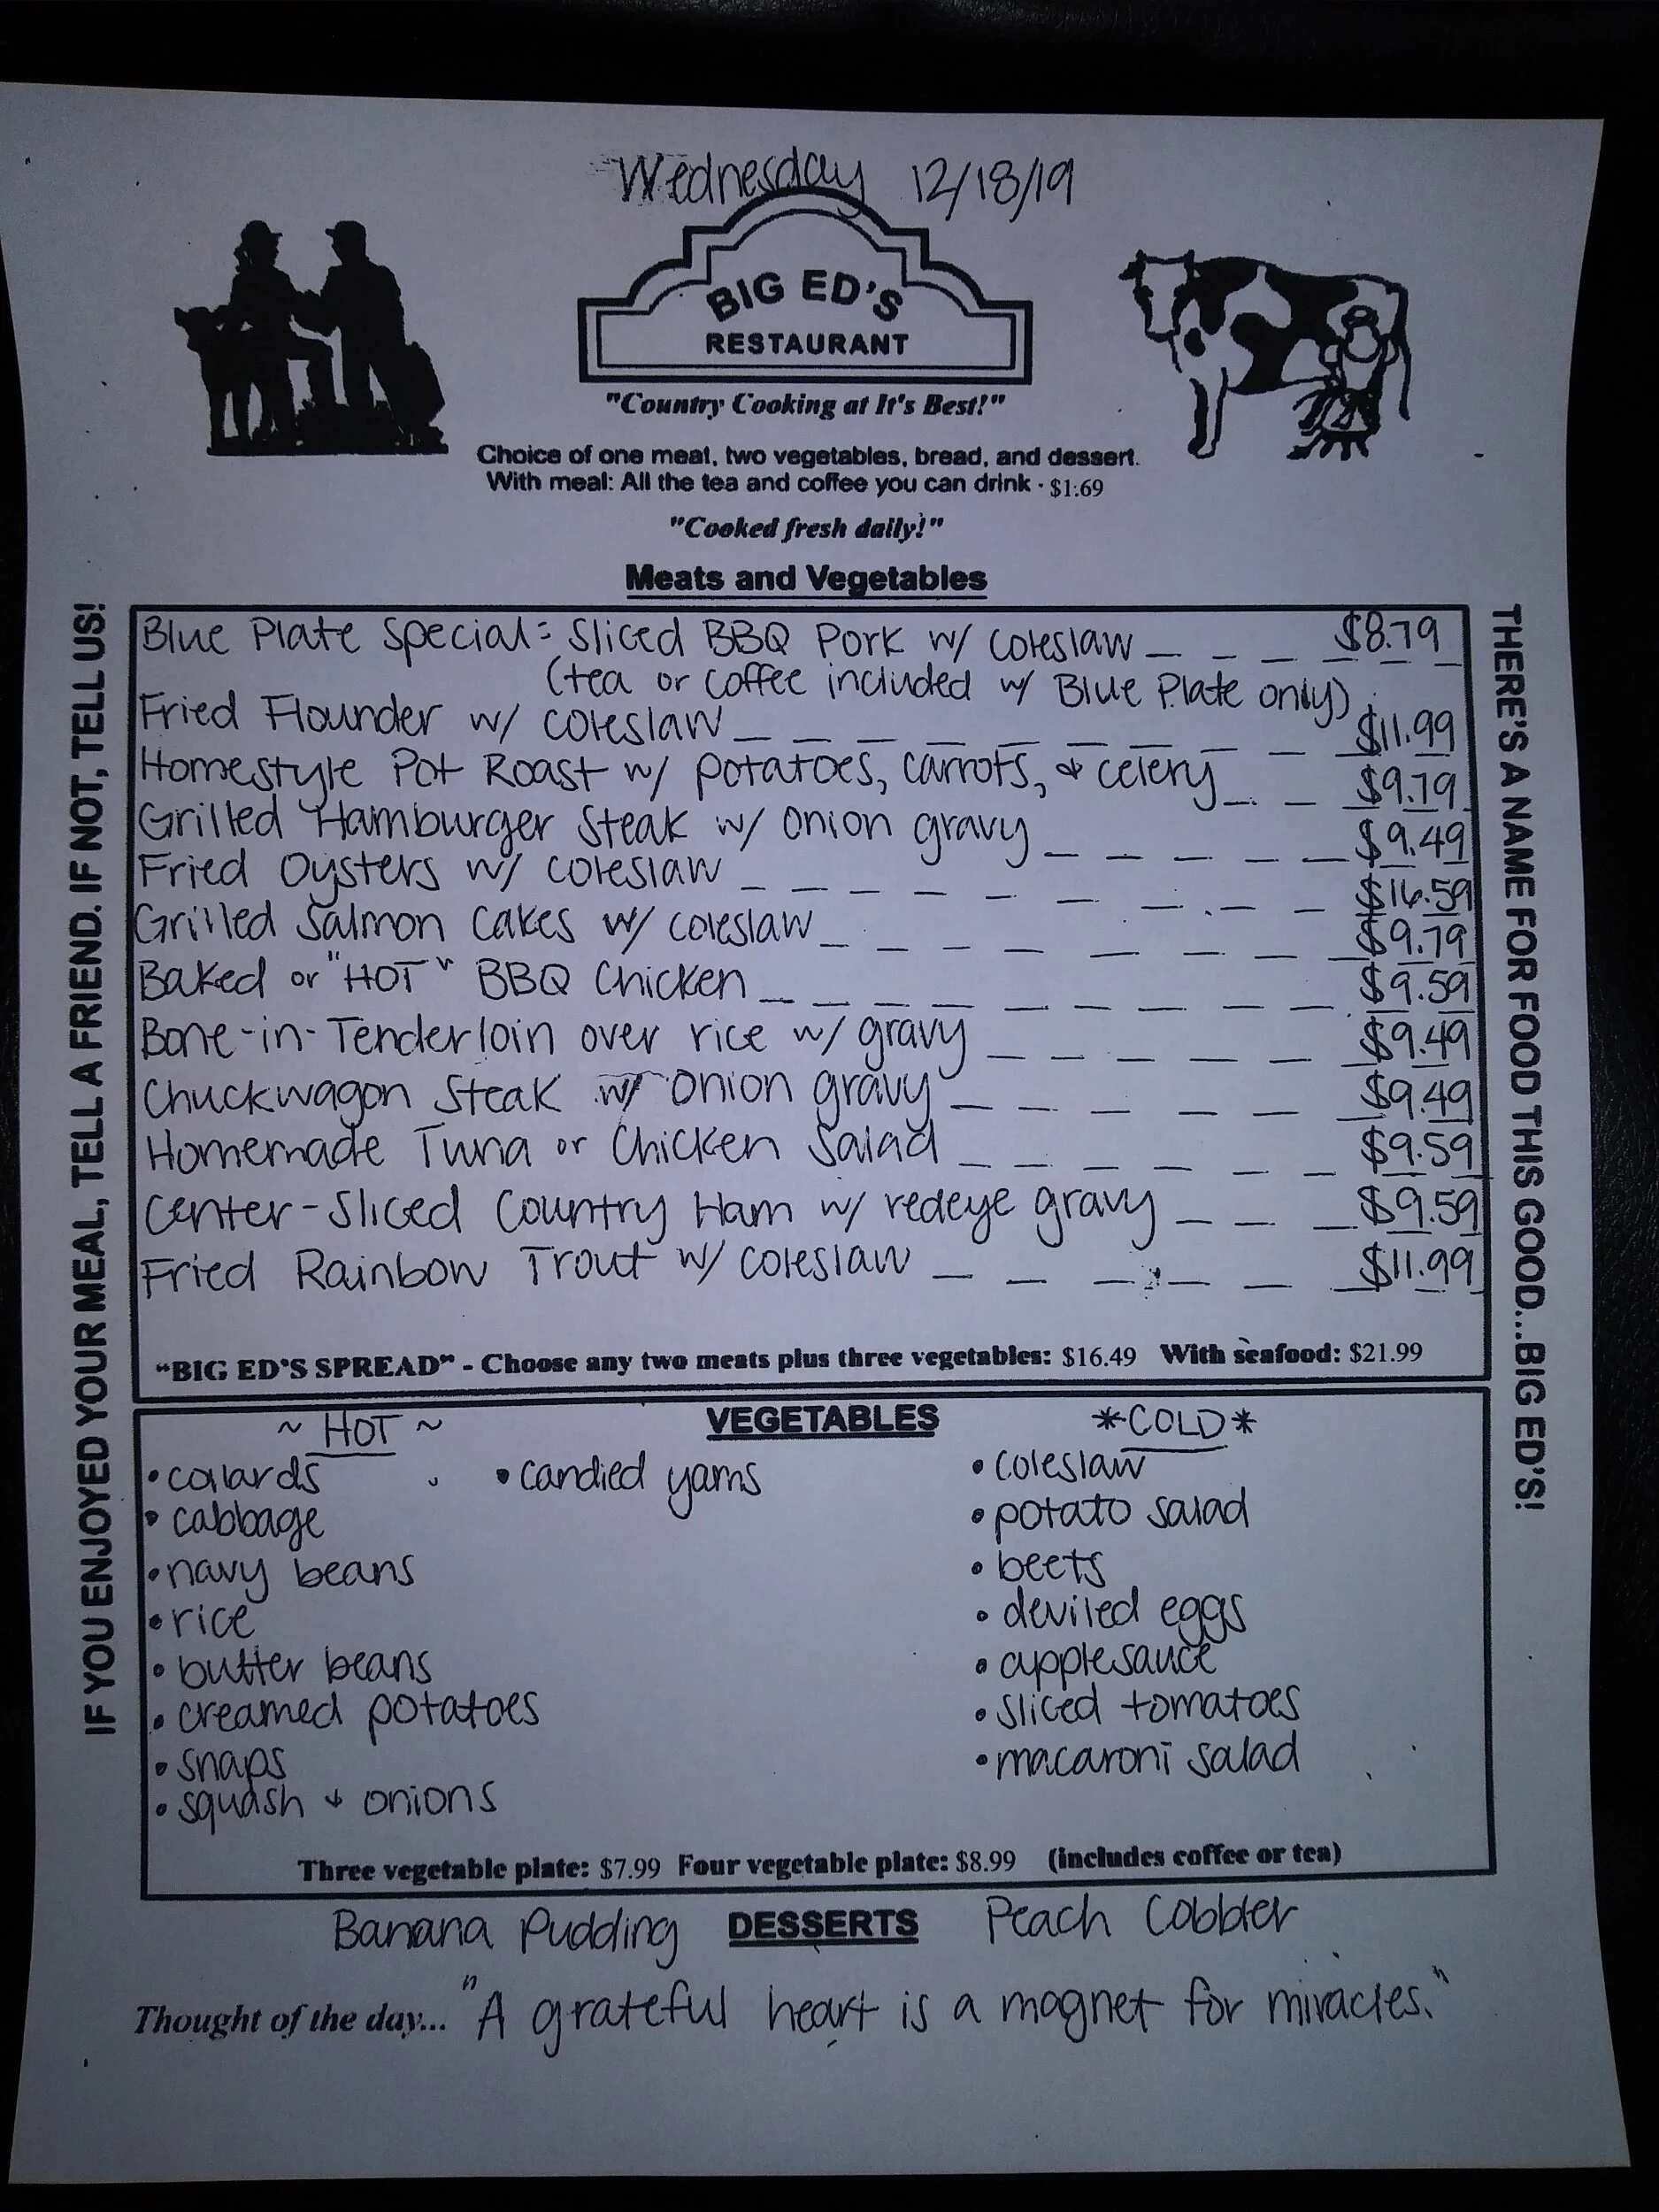 Wednesday 12/18/19
BIG ED'S
RESTAURANT
"Country Cooking at It's Best!"
Choice of one meat, two vegetables, bread, and dessert.
With meal: All the tea and coffee you can drink - $1.69
"Cooked fresh daily!"
Meats and Vegetables
IF YOU ENJOYED YOUR MEAL, TELL A FRIEND. IF NOT, TELL US!
Blue Plate Special: Sliced BBQ Pork w/ coleslaw _ _ _ _ _ _ $8.79
(tea or coffee included w/ Blue Plate only)
Fried Flounder w/ coleslaw _ _ _ _ _ _ _ _ _ $11.99
Homestyle Pot Roast w/ potatoes, carrots, & celery _ _ $9.79
Grilled Hamburger Steak w/ onion gravy _ _ _ _ _ $9.49
Fried Oysters w/ coleslaw _ _ _ _ _ _ _ _ _ $16.59
Grilled Salmon Cakes w/ coleslaw _ _ _ _ _ _ _ _ $9.79
Baked or "HOT" BBQ Chicken _ _ _ _ _ _ _ _ _ $9.59
Bone-in-Tenderloin over rice w/ gravy _ _ _ _ _ $9.49
Chuckwagon Steak w/ onion gravy _ _ _ _ _ _ $9.49
Homemade Tuna or Chicken Salad _ _ _ _ _ _ $9.59
Center-Sliced Country Ham w/ redeye gravy _ _ _ $9.59
Fried Rainbow Trout w/ coleslaw _ _ _ _ _ _ $11.99
"BIG ED'S SPREAD" - Choose any two meats plus three vegetables: $16.49 With seafood: $21.99
THERE'S A NAME FOR FOOD THIS GOOD...BIG ED'S!
~ HOT ~ VEGETABLES *COLD*
• collards • candied yams • coleslaw
• cabbage • potato salad
• navy beans • beets
• rice • deviled eggs
• butter beans • applesauce
• creamed potatoes • sliced tomatoes
• snaps • macaroni salad
• squash & onions
Three vegetable plate: $7.99 Four vegetable plate: $8.99 (includes coffee or tea)
Banana Pudding DESSERTS Peach Cobbler
Thought of the day... "A grateful heart is a magnet for miracles."